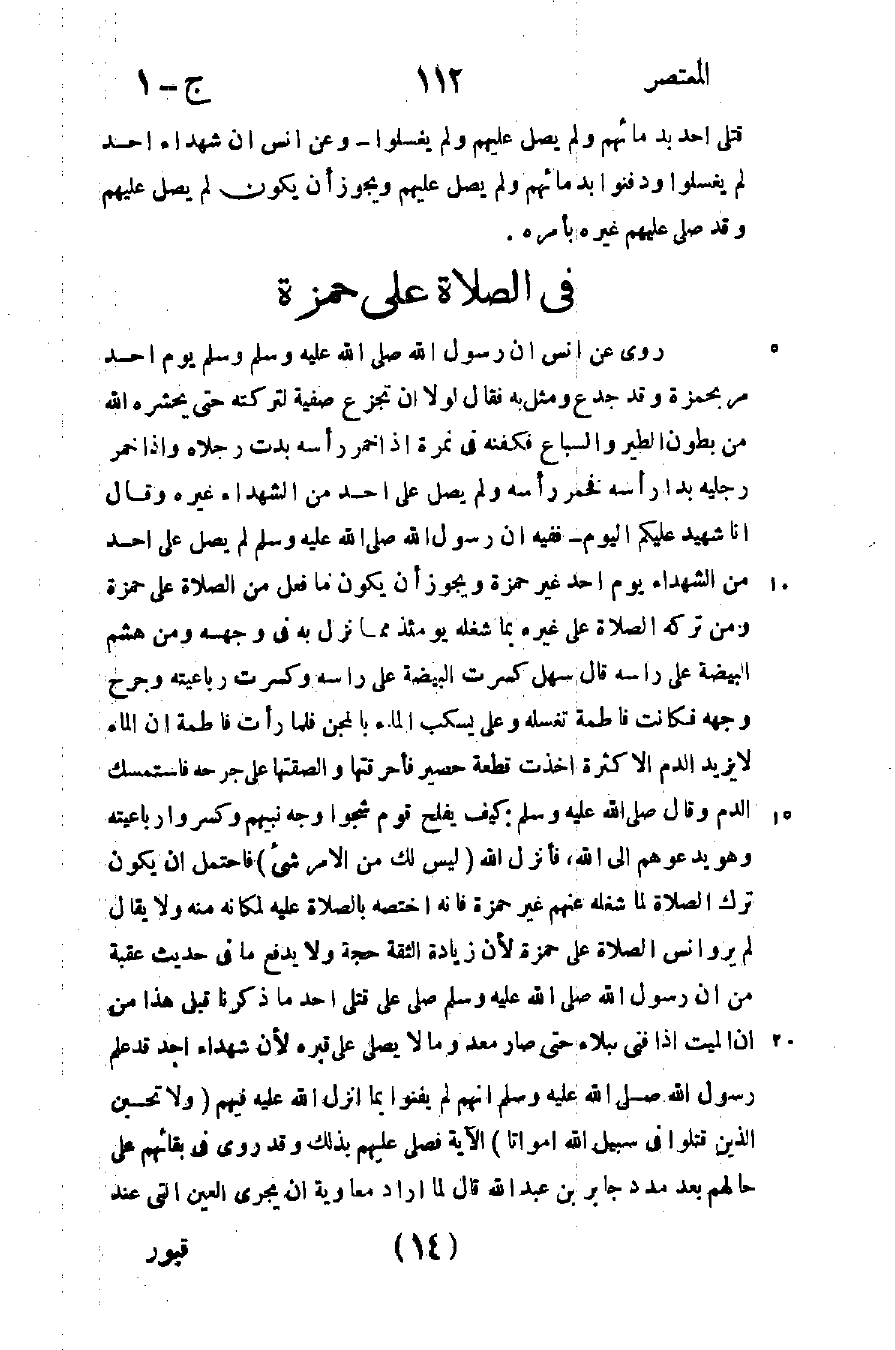 المعتصر ١١٢ ج - ١
قتلى احد بد مائهم ولم يصل عليهم ولم يغسلوا - وعن انس ان شهداء احد
لم يغسلوا ودفنوا بدمائهم ولم يصل عليهم ويجوز أن يكون لم يصل عليهم
وقد صلى عليهم غيره بأمره .
فى الصلاة على حمزة
روى عن انس ان رسول الله صلى الله عليه وسلم وسلم يوم احد ٥
مر بحمزة وقد جدع ومثل به فقال لولا ان تجزع صفية لتركته حتى يحشره الله
من بطون الطير والسباع فكفنه فى نمرة اذا خمر رأسه بدت رجلاه واذا خمر
رجليه بدا رأسه فخمر رأسه ولم يصل على احد من الشهداء غيره وقال
انا شهيد عليكم اليوم - ففيه ان رسول الله صلى الله عليه وسلم لم يصل على احد
من الشهداء يوم احد غير حمزة ويجوز أن يكون ما فعل من الصلاة على حمزة ١٠
ومن تركه الصلاة على غيره بما شغله يومئذ مما نزل به فى وجهه ومن هشم
البيضة على راسه قال سهل كسرت البيضة على راسه وكسرت رباعيته وجرح
وجهه فكانت فاطمة تغسله وعلى يسكب الماء بالمجن فلما رأت فاطمة ان الماء
لا يزيد الدم الا كثرة اخذت قطعة حصير فأحرقتها والصقتها على جرحه فاستمسك
الدم وقال صلى الله عليه وسلم : كيف يفلح قوم شجوا وجه نبيهم وكسروا رباعيته ١٥
وهو يدعوهم الى الله، فأنزل الله ( ليس لك من الامر شئ ) فاحتمل ان يكون
ترك الصلاة لما شغله عنهم غير حمزة فانه اختصه بالصلاة عليه لمكانه منه ولا يقال
لم يرو انس الصلاة على حمزة لأن زيادة الثقة حجة ولا يدفع ما فى حديث عقبة
من ان رسول الله صلى الله عليه وسلم صلى على قتلى احد ما ذكرنا قبل هذا من
ان الميت اذا فنى ببلاء حتى صار معد وما لا يصلى على قبره لأن شهداء احد قد علم ٢٠
رسول الله صلى الله عليه وسلم انهم لم يفنوا بما انزل الله عليه فيهم ( ولا تحسبن
الذين قتلوا فى سبيل الله امواتا ) الآية فصلى عليهم بذلك وقد روى فى بقائهم على
حالهم بعد مدد جابر بن عبد الله قال لما اراد معاوية ان يجرى العين التى عند
(١٤) قبور